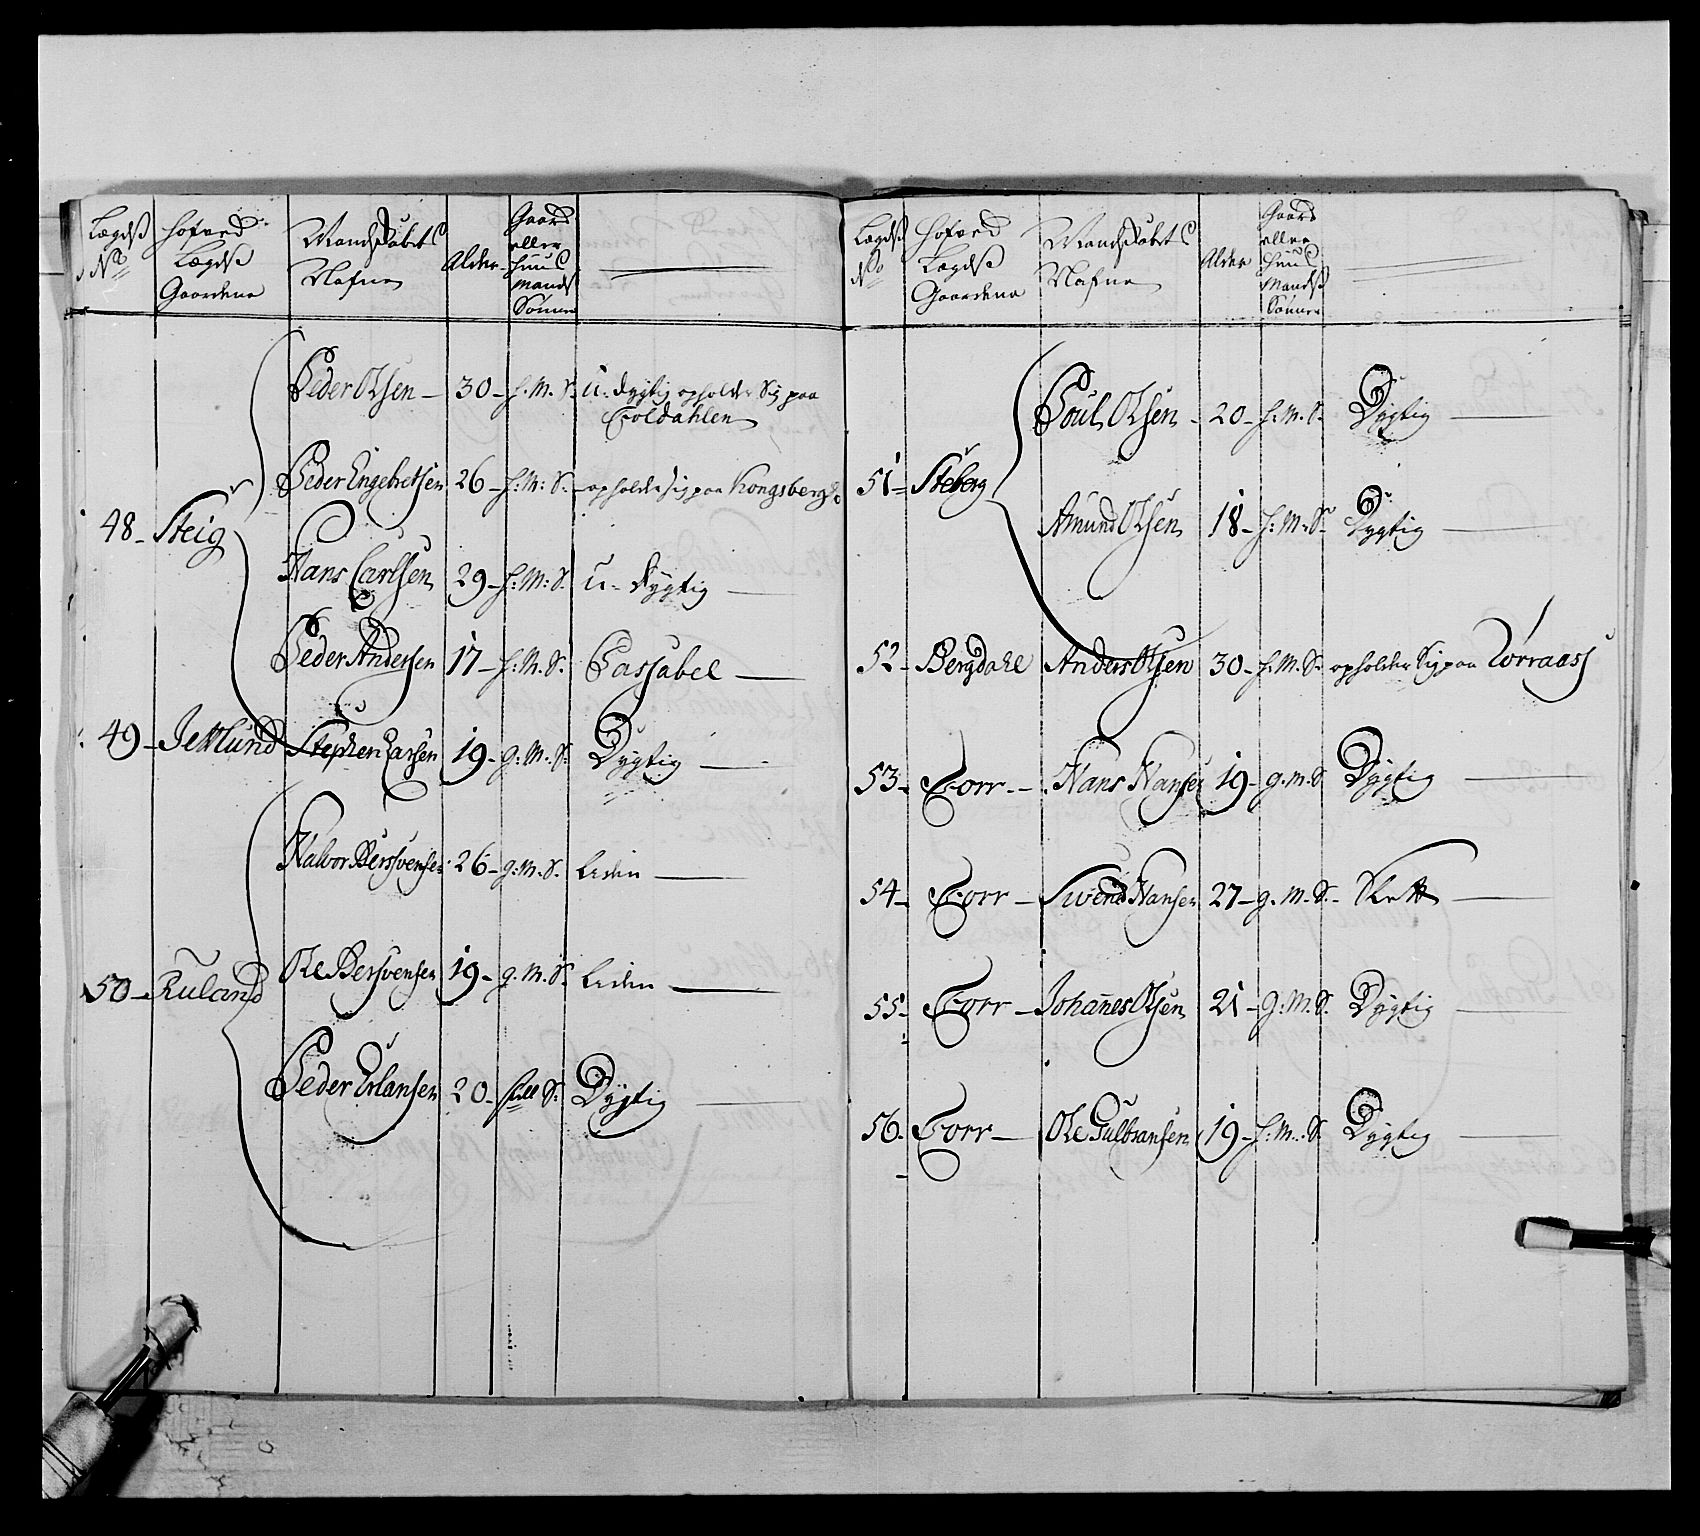 Lægds No
Hofved Lægds Gaardene
Mandskabets Nafne
Alder
Gaard eller Huus Mands Sønner
Peder Olsen - 30 - H. M. S. u-dygtig opholder sig paa
Foldahlen
Peder Engebretsen 26 - H: M: S. - opholder sig paa Kongsberg
48 - Steig
Hans Carlsen 29 - H: M: S. u-dygtig
Peder Andersen 17 - H: M. S. Passabel
49 - Jetlund Stephen Larsen 19 - g: M. S: Dygtig
Halvor Bersvensen 26 - g: M. S. Liden
50 - Ruland Ole Bersvensen 19 - g. M. S. Liden
Peder Erlansen 20 - S: Dygtig
Lægds No
Hofved Lægds Gaardene
Mandskabets Nafne
Alder
Gaards eller Huus Mands Sønner
Poul Olsen - 20 - H: M. S. Dygtig
51 - Steberg
Amund Olsen 18 - H: M. S. Dygtig
52 - Bergdahl Anders Olsen 30 - H: M. S. opholder sig paa Rørraass
53 - Forr - Hans Hansen 19 - g. M. S Dygtig
54 - Forr - Svend Hansen 27 - g. M. S. - Slett
55 - Forr - Johannes Olsen 21 - g: M. S. Dygtig
56 - Forr - Ole Gulbransen 19 - H: M. S. Dygtig